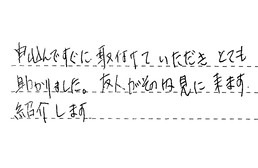 申込んですぐに取付けていただき とても
助かりました。友人がその内見に来ます
紹介します